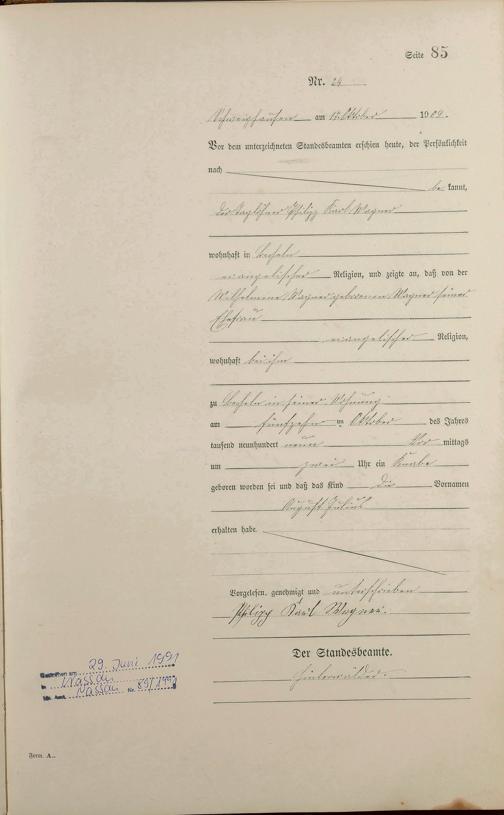 Seite 85
Nr. 24
Schweighausen am 15. Oktober 1909.
Vor dem unterzeichneten Standesbeamten erschien heute, der Persönlichkeit
nach
be kannt,
der Taglöhner Philipp Karl Wagner
wohnhaft in Becheln
evangelischer Religion, und zeigte an, daß von der
Wilhelmine Wagner geborenen Wagner seiner
Ehefrau
evangelischer Religion,
wohnhaft bei ihm
zu Becheln in seiner Wohnung
am fünfzehn ten Oktober des Jahres
tausend neunhundert neun Vor mittags
um zwei Uhr ein Knabe
geboren worden sei und daß das Kind die Vornamen
August Julius
erhalten habe.
Vorgelesen, genehmigt und unterschrieben
Philipp Karl Wagner.
Der Standesbeamte.
Hinterwälder.
Gestorben am 29. Juni 1991
in Nassau
Sta. Amt. Nassau Nr. 89/1991
Form. A..